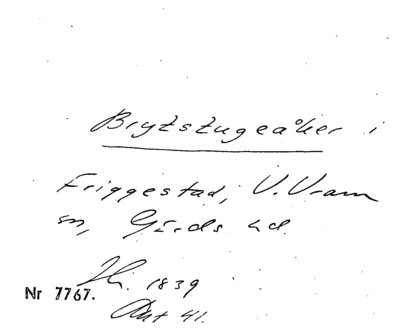 Brytstugeåker i
Friggestad, V. Vram
sn, Gärds hd.
1839
Nr 7767.
Akt 41.